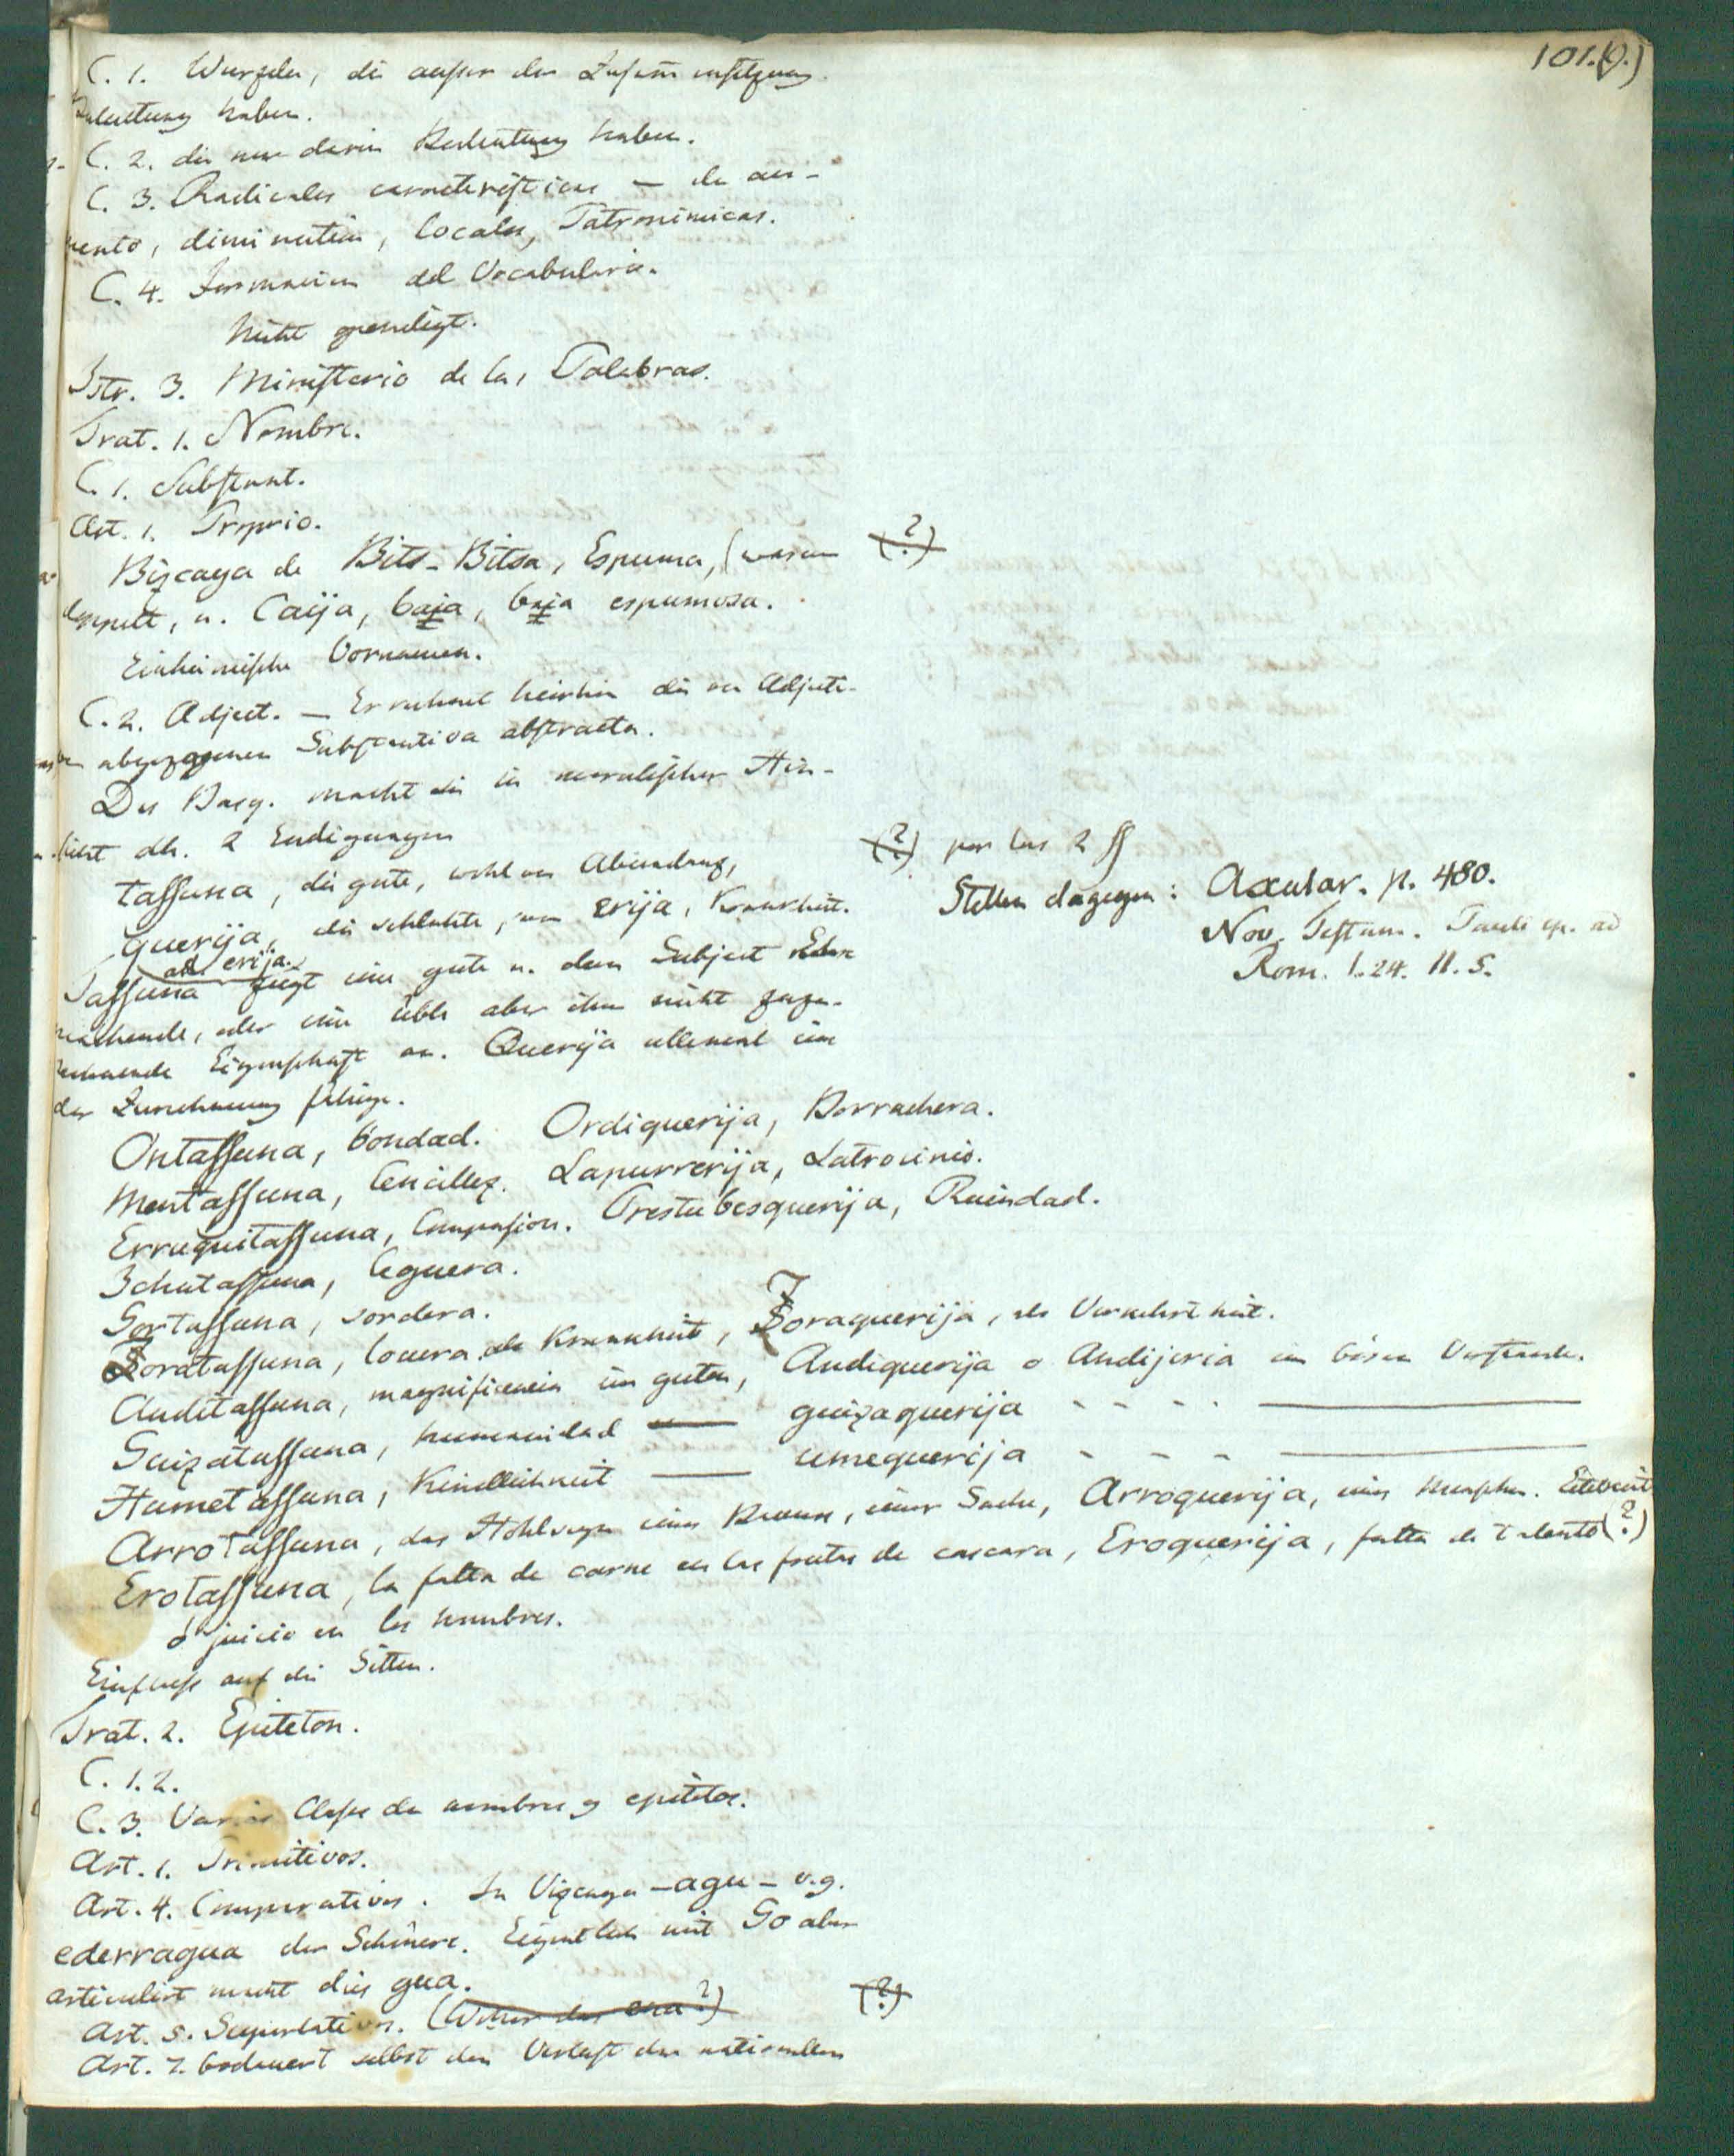 101.(9.)
C. 1. Wurzeln, die ausser der Zusam̄ensetzung
Bedeutung haben.
C. 2. die nur darin Bedeutung haben.
C. 3. Radicales caracteristicas – de au-
mento, diminutiva, locales, Patronimicas.
C. 4. Formacion del Vocabulario.
Nicht geendigt.
Istr. 3. Ministerio de las Palabras.
Trat. 1. Nombre.
C. 1. Substant.
Art. 1. Proprio.
Bizcaya de Bits-Bitsa, Espuma, (warum
doppelt, u. Caija, baja, baja espumosa.
(?)
Einheimische Vornamen.
C. 2. Adject. – Er rechnet hierhin die von Adjecti-
ven abgezogenen Substantiva abstracta.
Der Basq. macht die in moralischer Hin-
sicht dh. 2 Endigungen
tassuna, die gute, wohl von Abundanz,
(?) por las 2 ss
querija, die schlechte, von erija, Krankheit.
od. erija.
Stellen dagegen: Axular. p. 480.
Nov. Testam. Pauli ep. ad
Rom. 1. 24. 11. 5.
Tassuna zeigt eine gute u. dem Subject Ehre
machende, oder eine üble aber ihm nicht zuzu-
rechnende Eigenschaft an. Querija allemal eine
der Zurechnung fähige.
Ontassuna, bondad. Ordiquerija, Borrachera.
Mentassuna, Sencillez. Lapurrerija, Latrocinio.
Erruquitassuna, Compasion. Prestubesquerija, Ruindad.
Ichutassuna, Ceguera.
Gortassuna, sordera.
Zoratassuna, locura als Krankheit, Zoraquerija, als Verkehrtheit.
Anditassuna, magnificencia im guten, Andiquerija o Andijeria im bösen Verstande.
Guizatassuna, humanidad — guizaquerija - - - - —
Humetassuna, Kindlichkeit — umequerija - - - - —
Arrotassuna, das Hohlseyn eines Baums, einer Sache, Arroquerija, eines Menschen. Eitelkeit
Erotassuna, la falta de carne en las frutas de cascara, Eroquerija, falta de talento (?)
ó juicio en los hombres.
Einfluss auf die Sitten.
Trat. 2. Epiteton.
C. 1. 2.
C. 3. Varias Clases de nombres y epitetos.
Art. 1. Primitivos.
Art. 4. Comparativos. In Vizcaya – agu – v.g.
ederragua der Schönere. Eigentlich mit Go aber
articulirt macht dies gua.
Art. 5. Superlativos. (Woher das ena?)
(?)
Art. 7. bedauert selbst den Verlust der nationellen